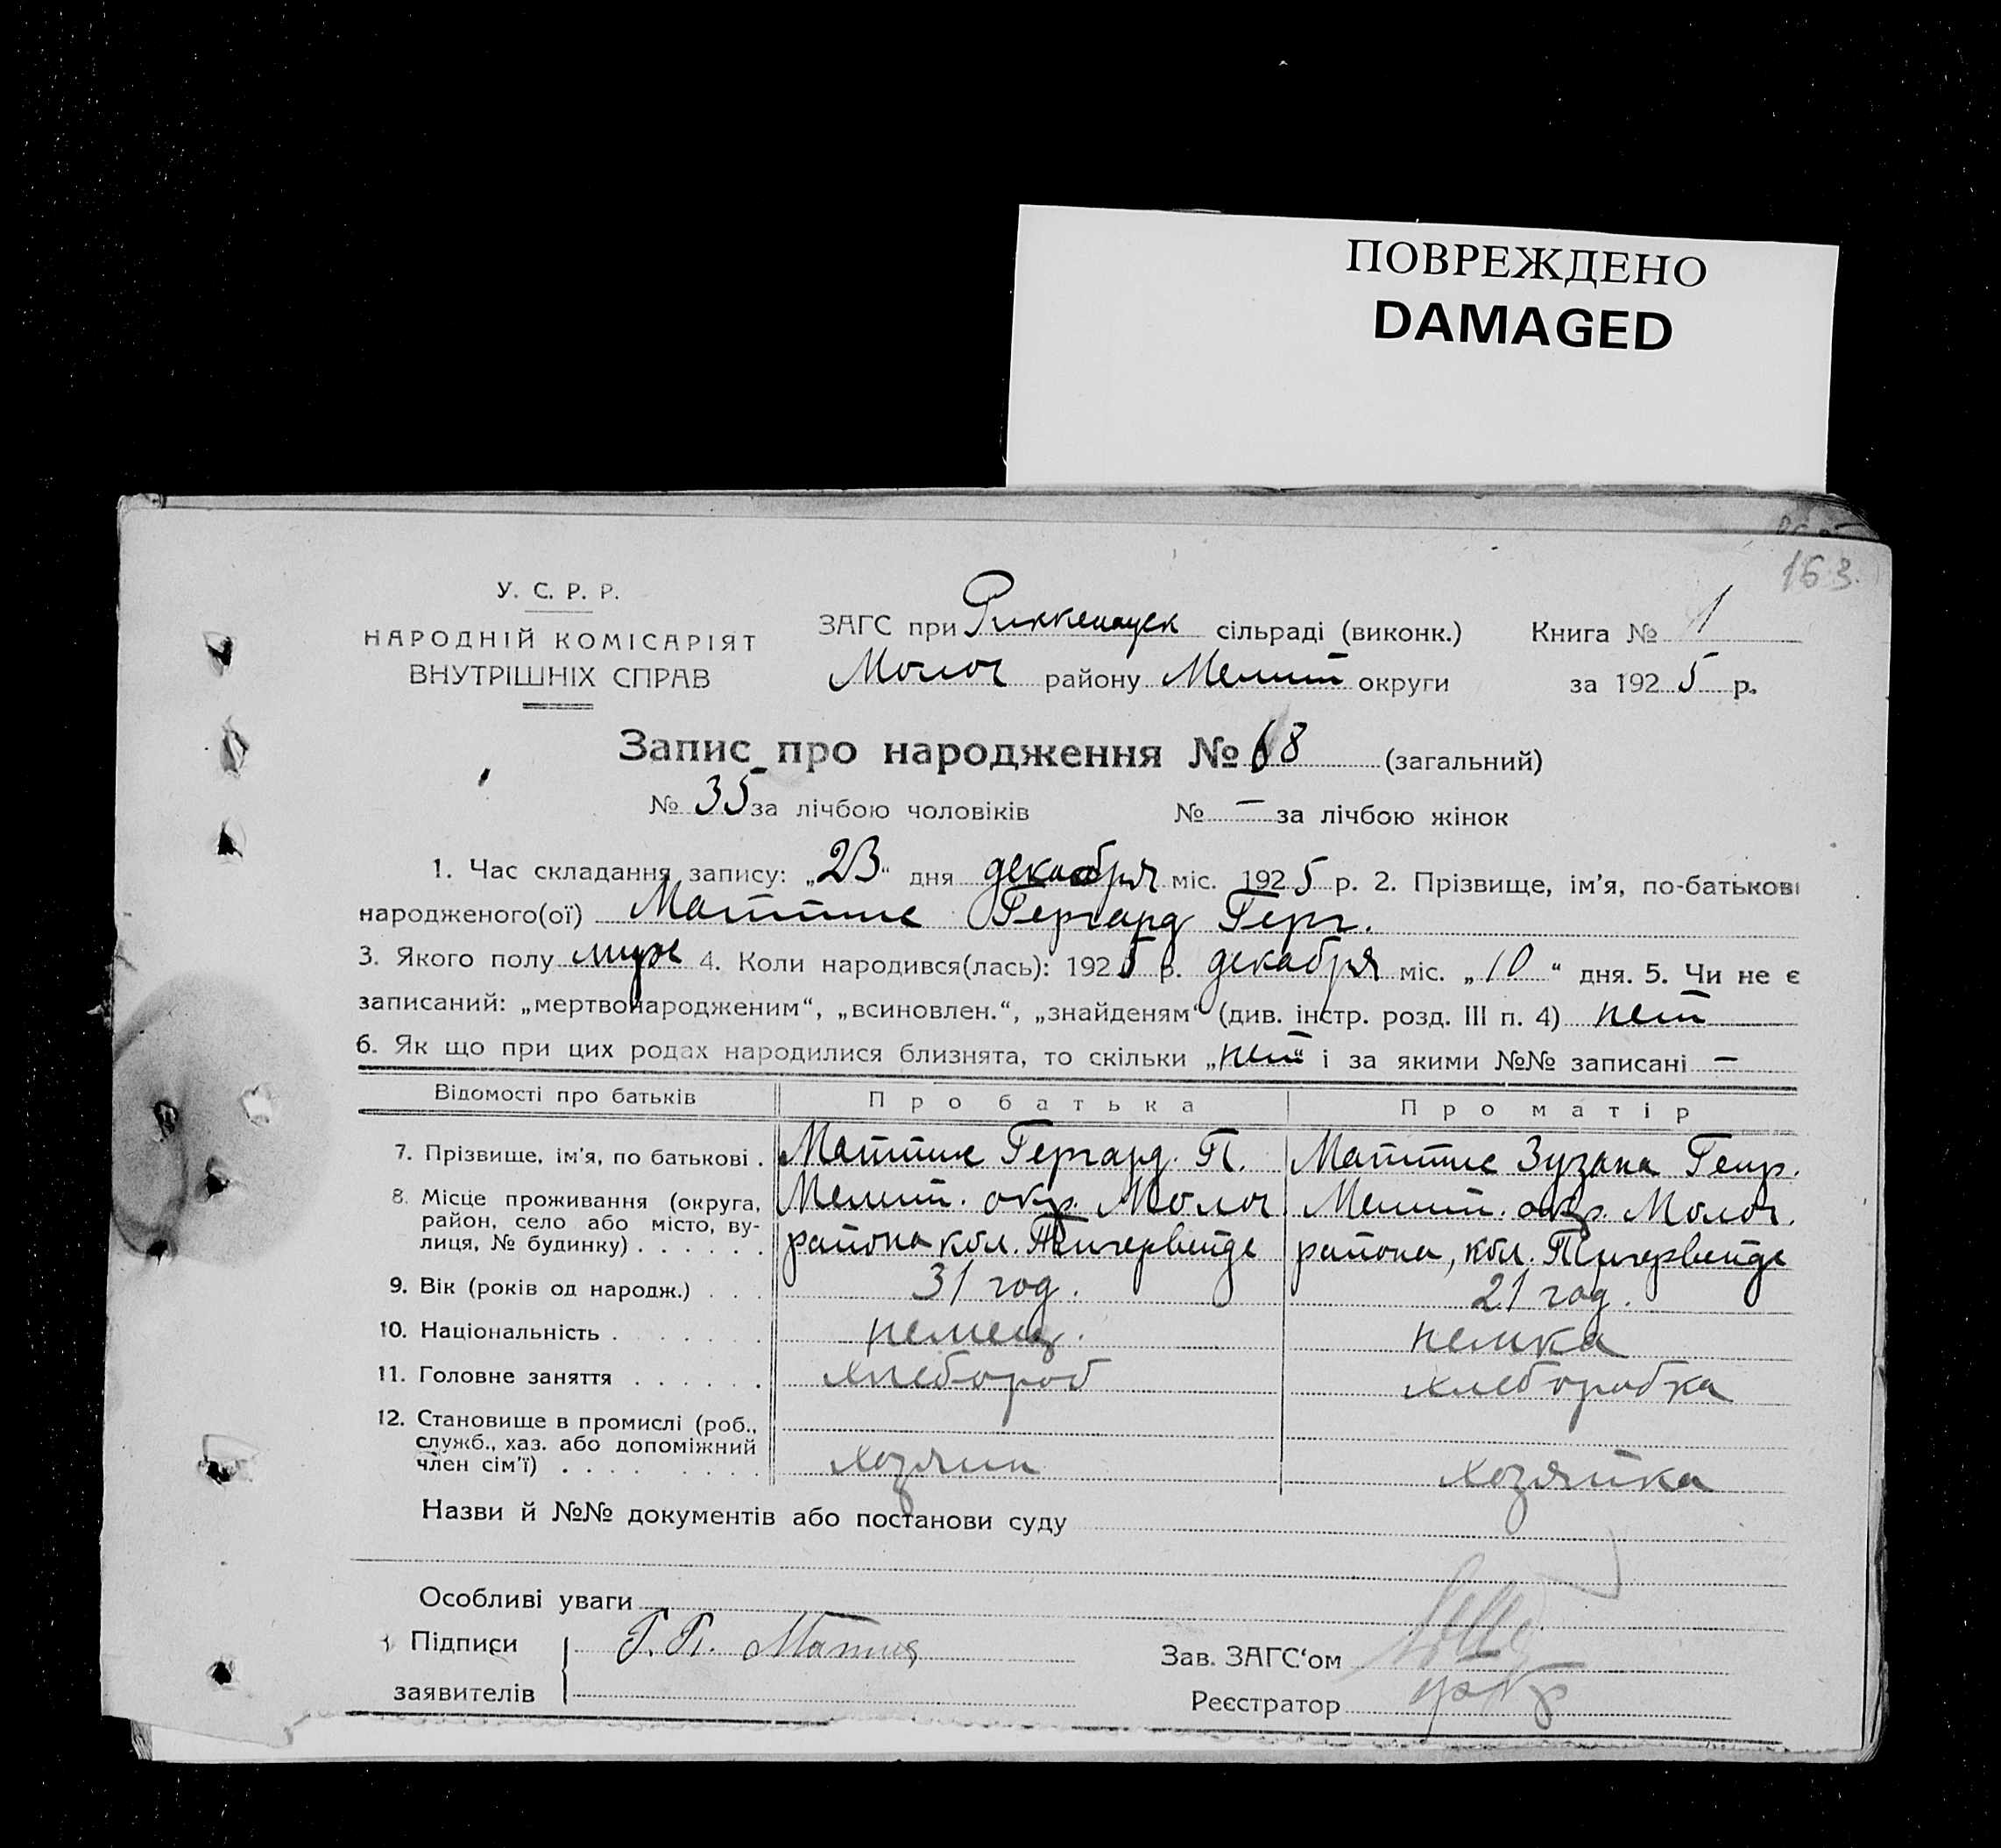 ПОВРЕЖДЕНО
DAMAGED
163.
У. С. Р. Р.
НАРОДНІЙ КОМІСАРІЯТ
ВНУТРІШНІХ СПРАВ
ЗАГС при Риккенауск сільраді (виконк.) Книга № 1
Молоч району Мелит округи за 1925 р.
Запис про народження № 68 (загальний)
№ 35 за лічбою чоловіків № — за лічбою жінок
1. Час складання запису: „23“ дня декабря міс. 1925 р. 2. Прізвище, ім’я, по-батькові
народженого(ої) Маттис Гергард Герг.
3. Якого полу муж 4. Коли народився(лась): 1925 р. декабря міс. „10“ дня. 5. Чи не є
записаний: „мертвонародженим“, „всиновлен.“, „знайденям“ (див. інстр. розд. III п. 4) нет
6. Як що при цих родах народилися близнята, то скільки „нет“ і за якими №№ записані —
Відомості про батьків Про батька Про матір
7. Прізвище, ім’я, по батькові . Маттис Гергард. П. Маттис Зузана Генр.
8. Місце проживання (округа, Мелит. окр. Молоч Мелит. окр. Молоч.
район, село або місто, ву-
лиця, № будинку) . . . . . . района кол. Тигервейде района, кол. Тигервейде
9. Вік (років од народж.) . . . 31 год. 21 год.
10. Національність . . . . . . немец. немка
11. Головне заняття . . . . . . хлебороб хлеборобка
12. Становище в промислі (роб.,
служб., хаз. або допоміжний
член сім’ї) . . . . . . . . хозяин хозяйка
Назви й №№ документів або постанови суду
Особливі уваги
Підписи Г. П. Матис
Зав. ЗАГС‘ом
заявителів
Реєстратор